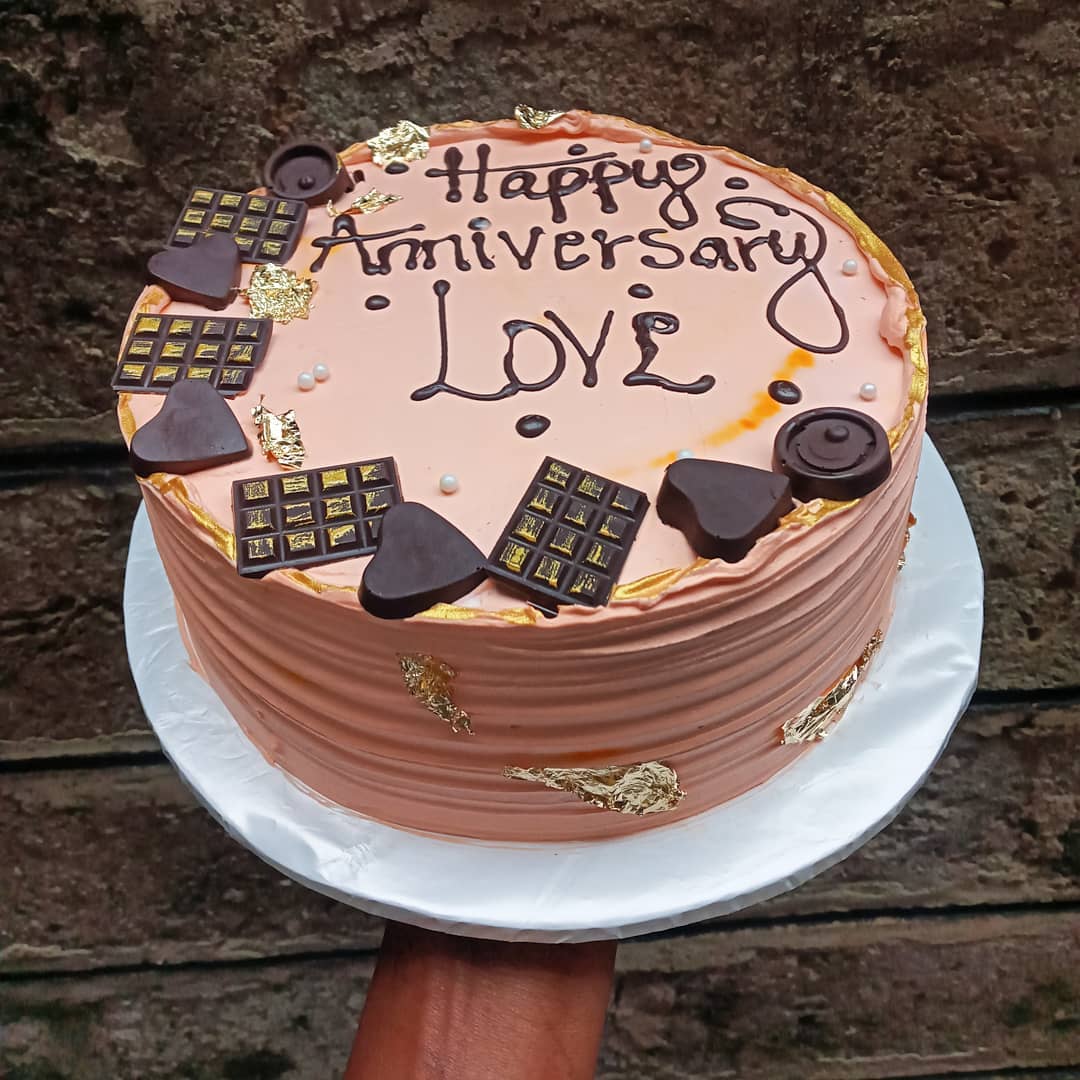 Happy
Anniversary
Love